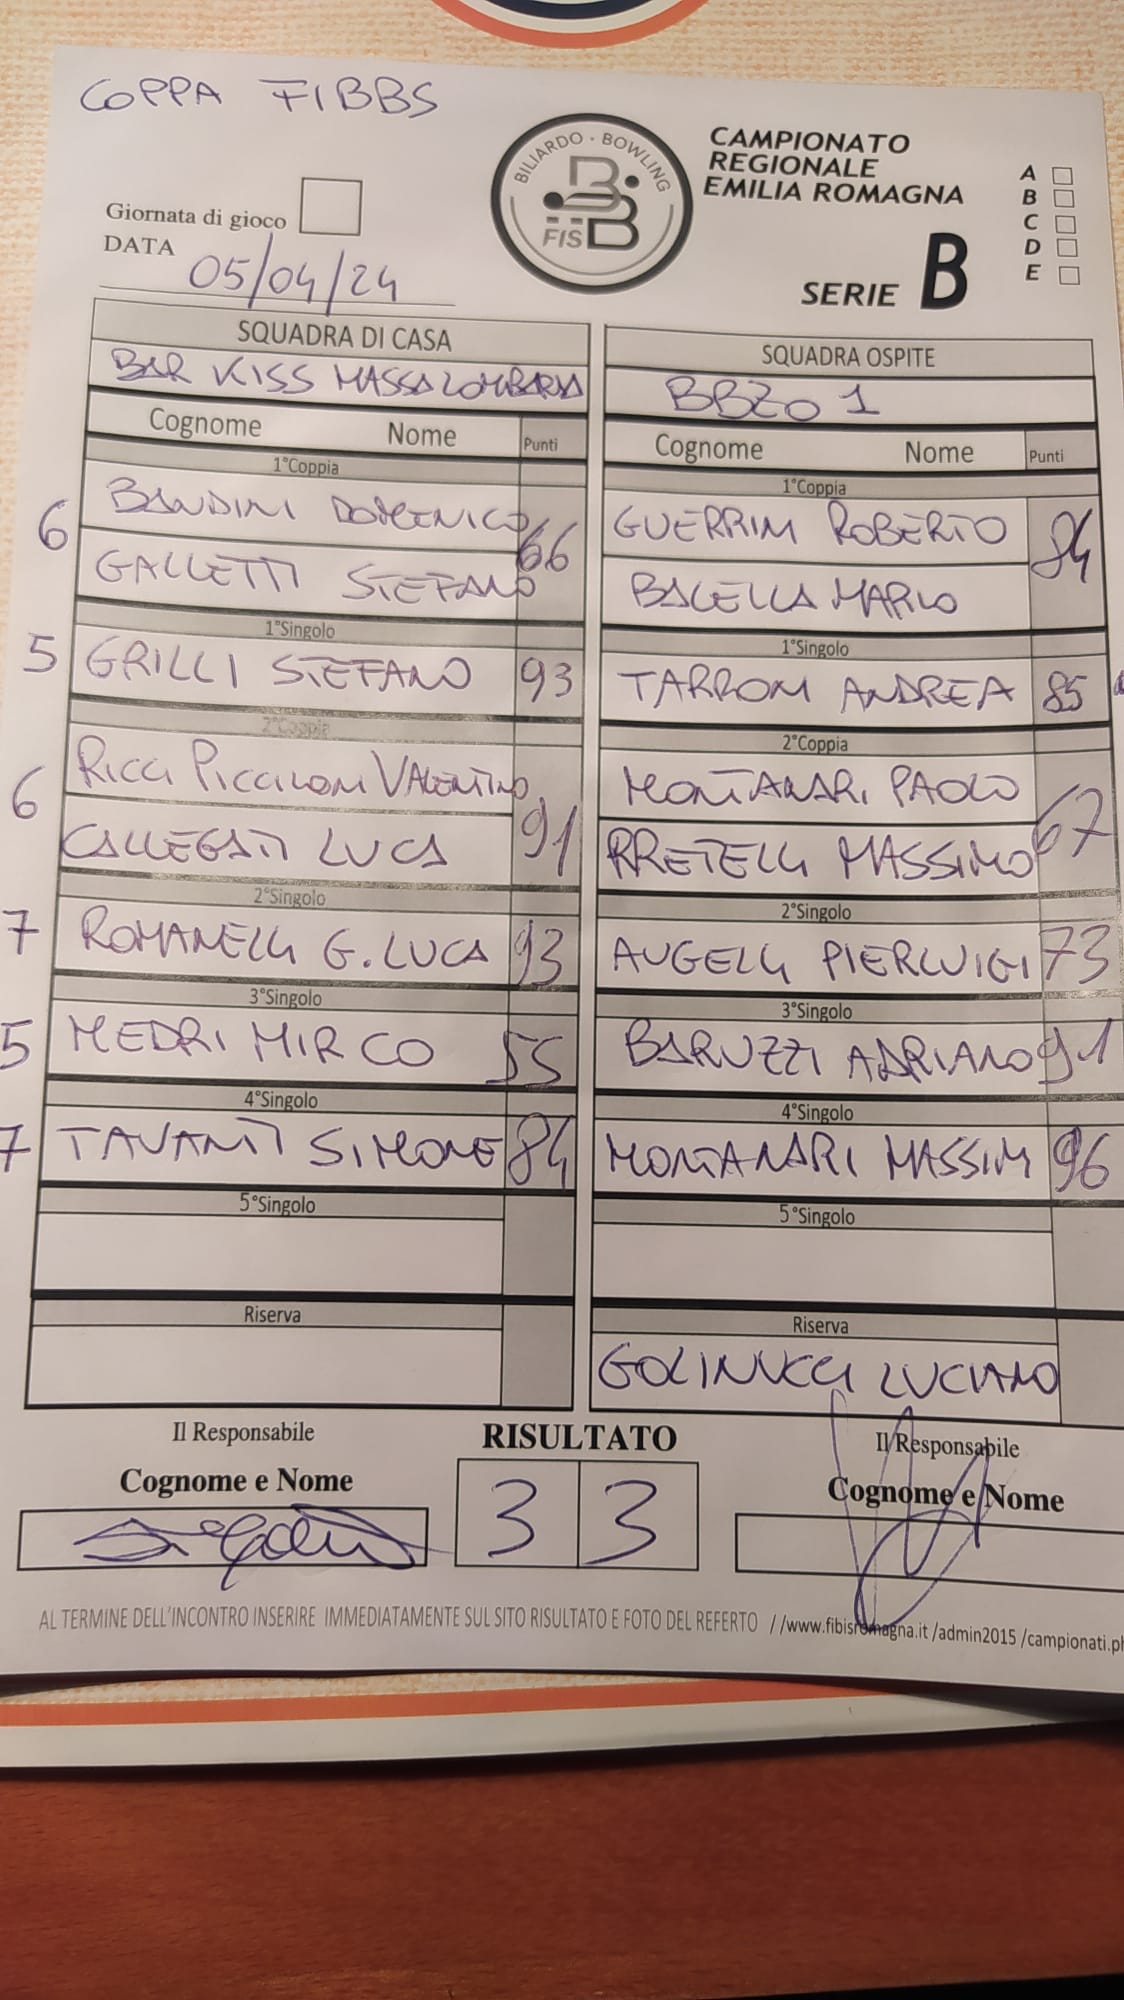 COPPA FIBBS
BILIARDO · BOWLING
FISBB
CAMPIONATO
REGIONALE
EMILIA ROMAGNA
SERIE B
A
B
C
D
E
Giornata di gioco
DATA 05/04/24
SQUADRA DI CASA
BAR KISS MASSALOMBARDA
Cognome Nome Punti
1°Coppia
6 BANDINI DOMENICO 66
GALLETTI STEFANO
1°Singolo
5 GRILLI STEFANO 93
2°Coppia
6 RICCI PICCILONI VALENTINO 91
CALLEGATI LUCA
2°Singolo
7 ROMANELLI G. LUCA 93
3°Singolo
5 MEDRI MIRCO 55
4°Singolo
7 TAVANTI SIMONE 84
5°Singolo
Riserva
SQUADRA OSPITE
BBZO 1
Cognome Nome Punti
1°Coppia
GUERRINI ROBERTO 84
BACELLA MARIO
1°Singolo
TARRONI ANDREA 85
2°Coppia
MONTANARI PAOLO 67
RRETELLI MASSIMO
2°Singolo
AUGELLI PIERLUIGI 73
3°Singolo
BARUZZI ADRIANO 91
4°Singolo
MONTANARI MASSIM 96
5°Singolo
Riserva
GOLINUCCI LUCIANO
Il Responsabile
Cognome e Nome
RISULTATO
3 3
Il Responsabile
Cognome e Nome
AL TERMINE DELL'INCONTRO INSERIRE IMMEDIATAMENTE SUL SITO RISULTATO E FOTO DEL REFERTO //www.fibisromagna.it /admin2015 /campionati.ph